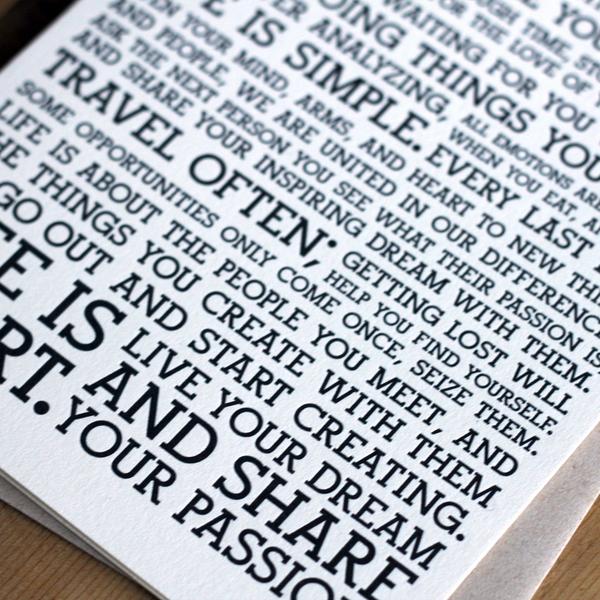 OUGH TIME, STO
YOU
WAITING FOR THE LOVE OF Y
DOING THINGS YOU
ER ANALYZING, ALL EMOTIONS ARE
IS SIMPLE. WHEN YOU EAT, A
EN YOUR MIND, ARMS, AND HEART TO NEW THI
AND PEOPLE, WE ARE UNITED IN OUR DIFFERENC
EVERY LAST
ASK THE NEXT PERSON YOU SEE WHAT THEIR PASSION IS
AND SHARE YOUR INSPIRING DREAM WITH THEM.
TRAVEL OFTEN; GETTING LOST WILL
HELP YOU FIND YOURSELF.
SOME OPPORTUNITIES ONLY COME ONCE, SEIZE THEM.
LIFE IS ABOUT THE PEOPLE YOU MEET, AND
HE THINGS YOU CREATE WITH THEM
GO OUT AND START CREATING.
FE IS LIVE YOUR DREAM
RT. AND SHARE
YOUR PASSIO